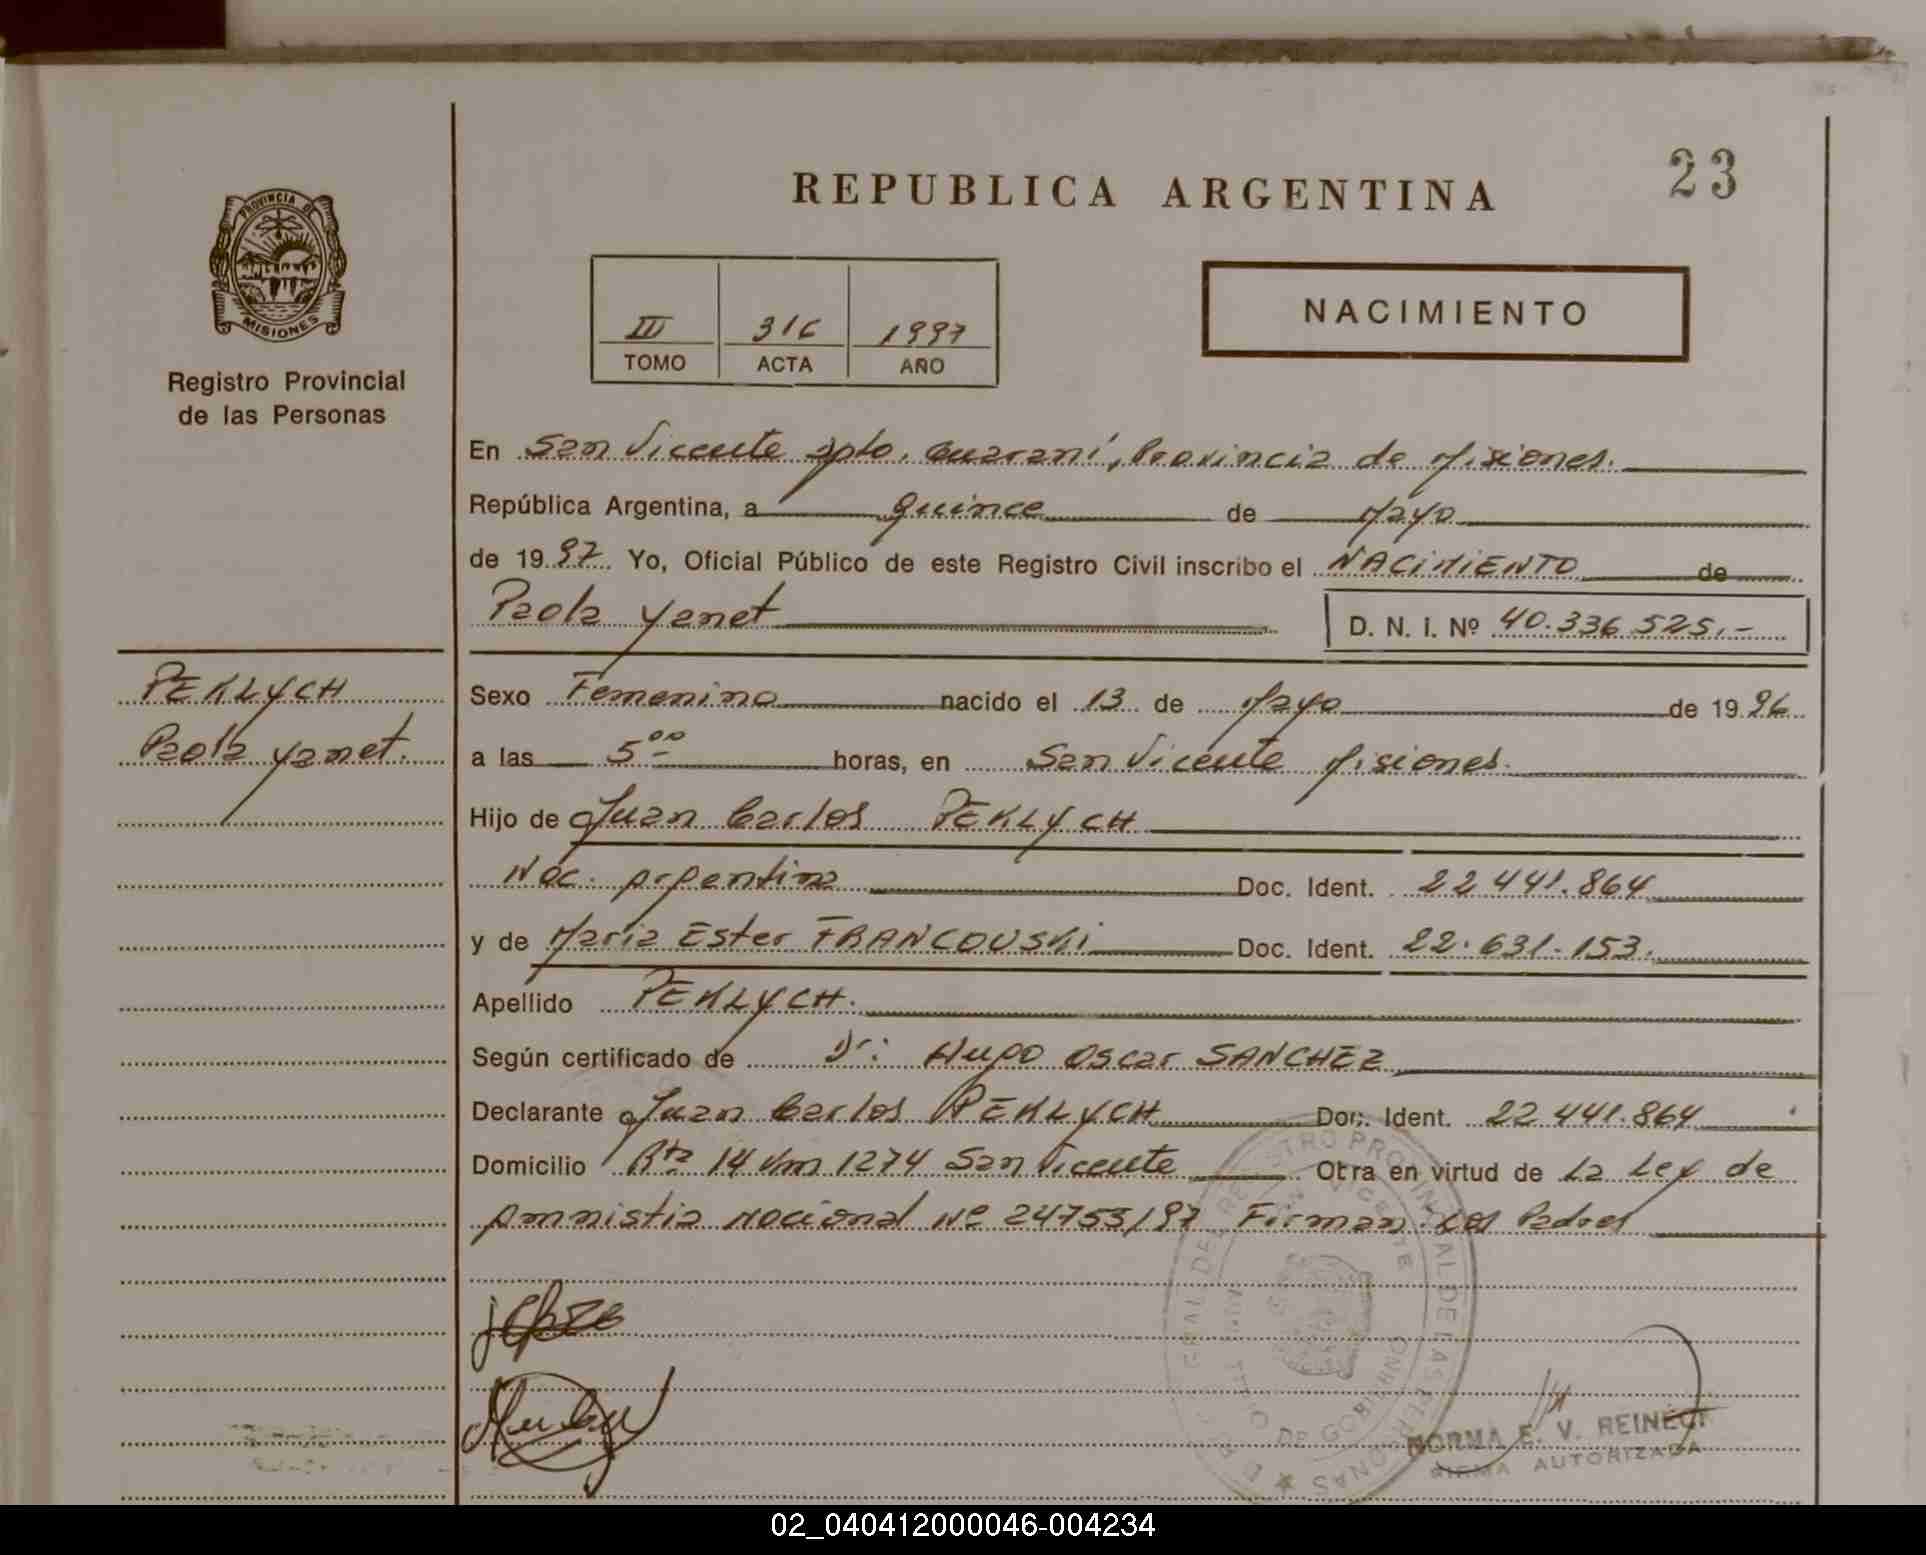 23
REPUBLICA ARGENTINA
PROVINCIA DE
MISIONES
Registro Provincial
de las Personas
III 316 1997
TOMO ACTA AÑO
NACIMIENTO
En San Vicente Dpto. Guaraní, Provincia de Misiones.
República Argentina, a quince de Mayo
de 1997 Yo, Oficial Público de este Registro Civil inscribo el NACIMIENTO de
Paola Yanet D. N. I. Nº 40.336.525.-
PEKLYCH
Paola Yanet.
Sexo Femenino nacido el 13 de Mayo de 1996
a las 500 horas, en San Vicente Misiones.
Hijo de Juan Carlos PEKLYCH
Nac. Argentina Doc. Ident. 22 441.864
y de Maria Ester FRANCOUSKI Doc. Ident. 22.631.153.
Apellido PEKLYCH.
Según certificado de Dr: Hugo Oscar SANCHEZ
Declarante Juan Carlos PEKLYCH Doc. Ident. 22 441.864
Domicilio Rta 14 Km 1274 San Vicente Otra en virtud de La Ley de
Amnistia Nacional Nº 24755/97 Firman Los Padres
NORMA E. V. REINECK
FIRMA AUTORIZADA
02_040412000046-004234